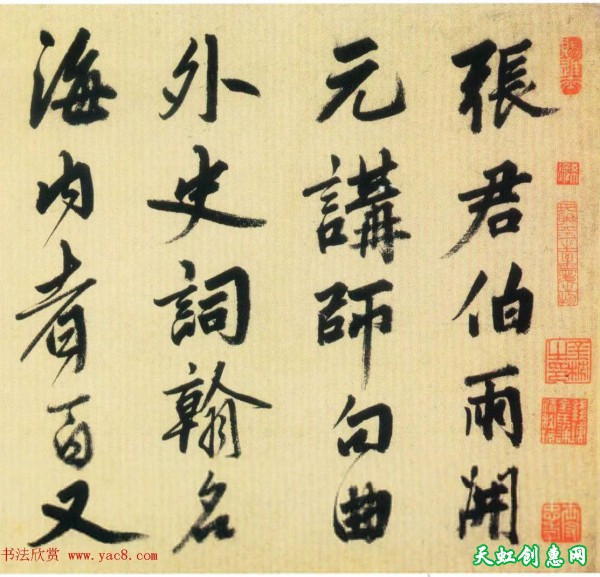 張君伯雨開
元講師句曲
外史詞翰名
海内者百又
书法欣赏 www.yac8.com
天虹创惠网